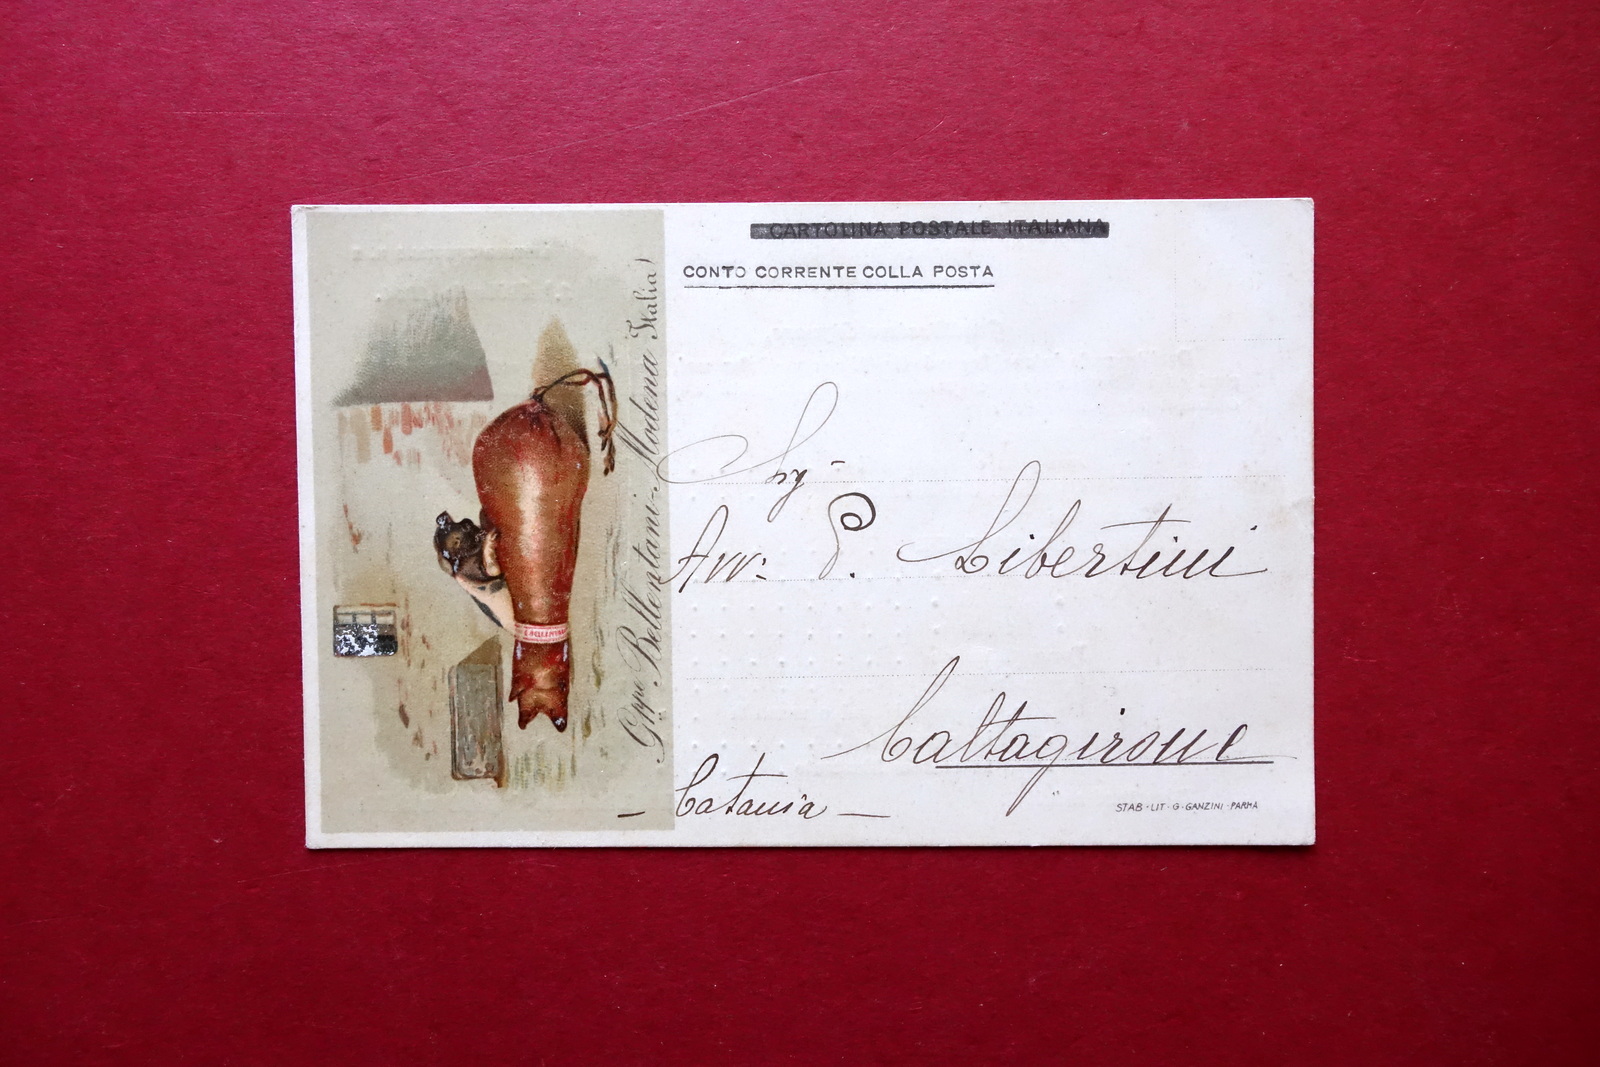 CARTOLINA POSTALE ITALIANA
CONTO CORRENTE COLLA POSTA
Gppe Bellentani - Modena Italia)
Sig.
Avv: P. Libertini
Caltagirone
- Catania -
STAB · LIT · G · GANZINI · PARMA